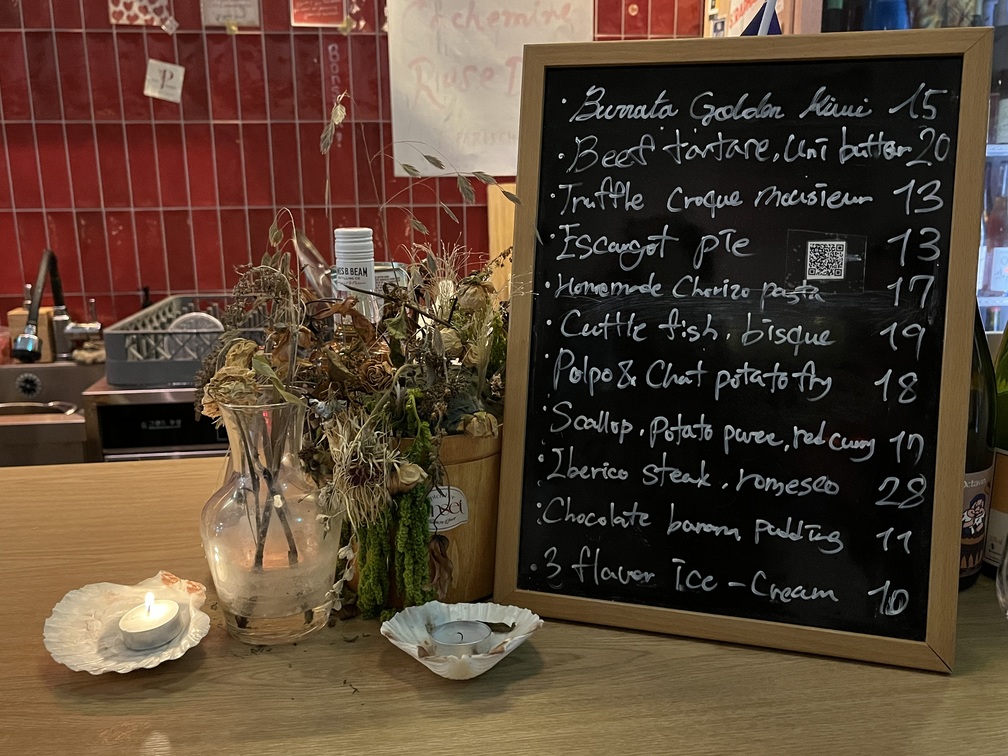 Cacheming
P
Burrata Golden kiwi 15
Beef tartare, Uni butter 20
Truffle croque mousieur 13
Escargot pie 13
Homemade Chorizo pasta 17
Cuttle fish, bisque 19
Polpo & Chat potato fry 18
Scallop, potato puree, red curry 17
Iberico steak, romesco 28
Chocolate banana pudding 11
3 flavor Ice-Cream 10
MES B. BEAM